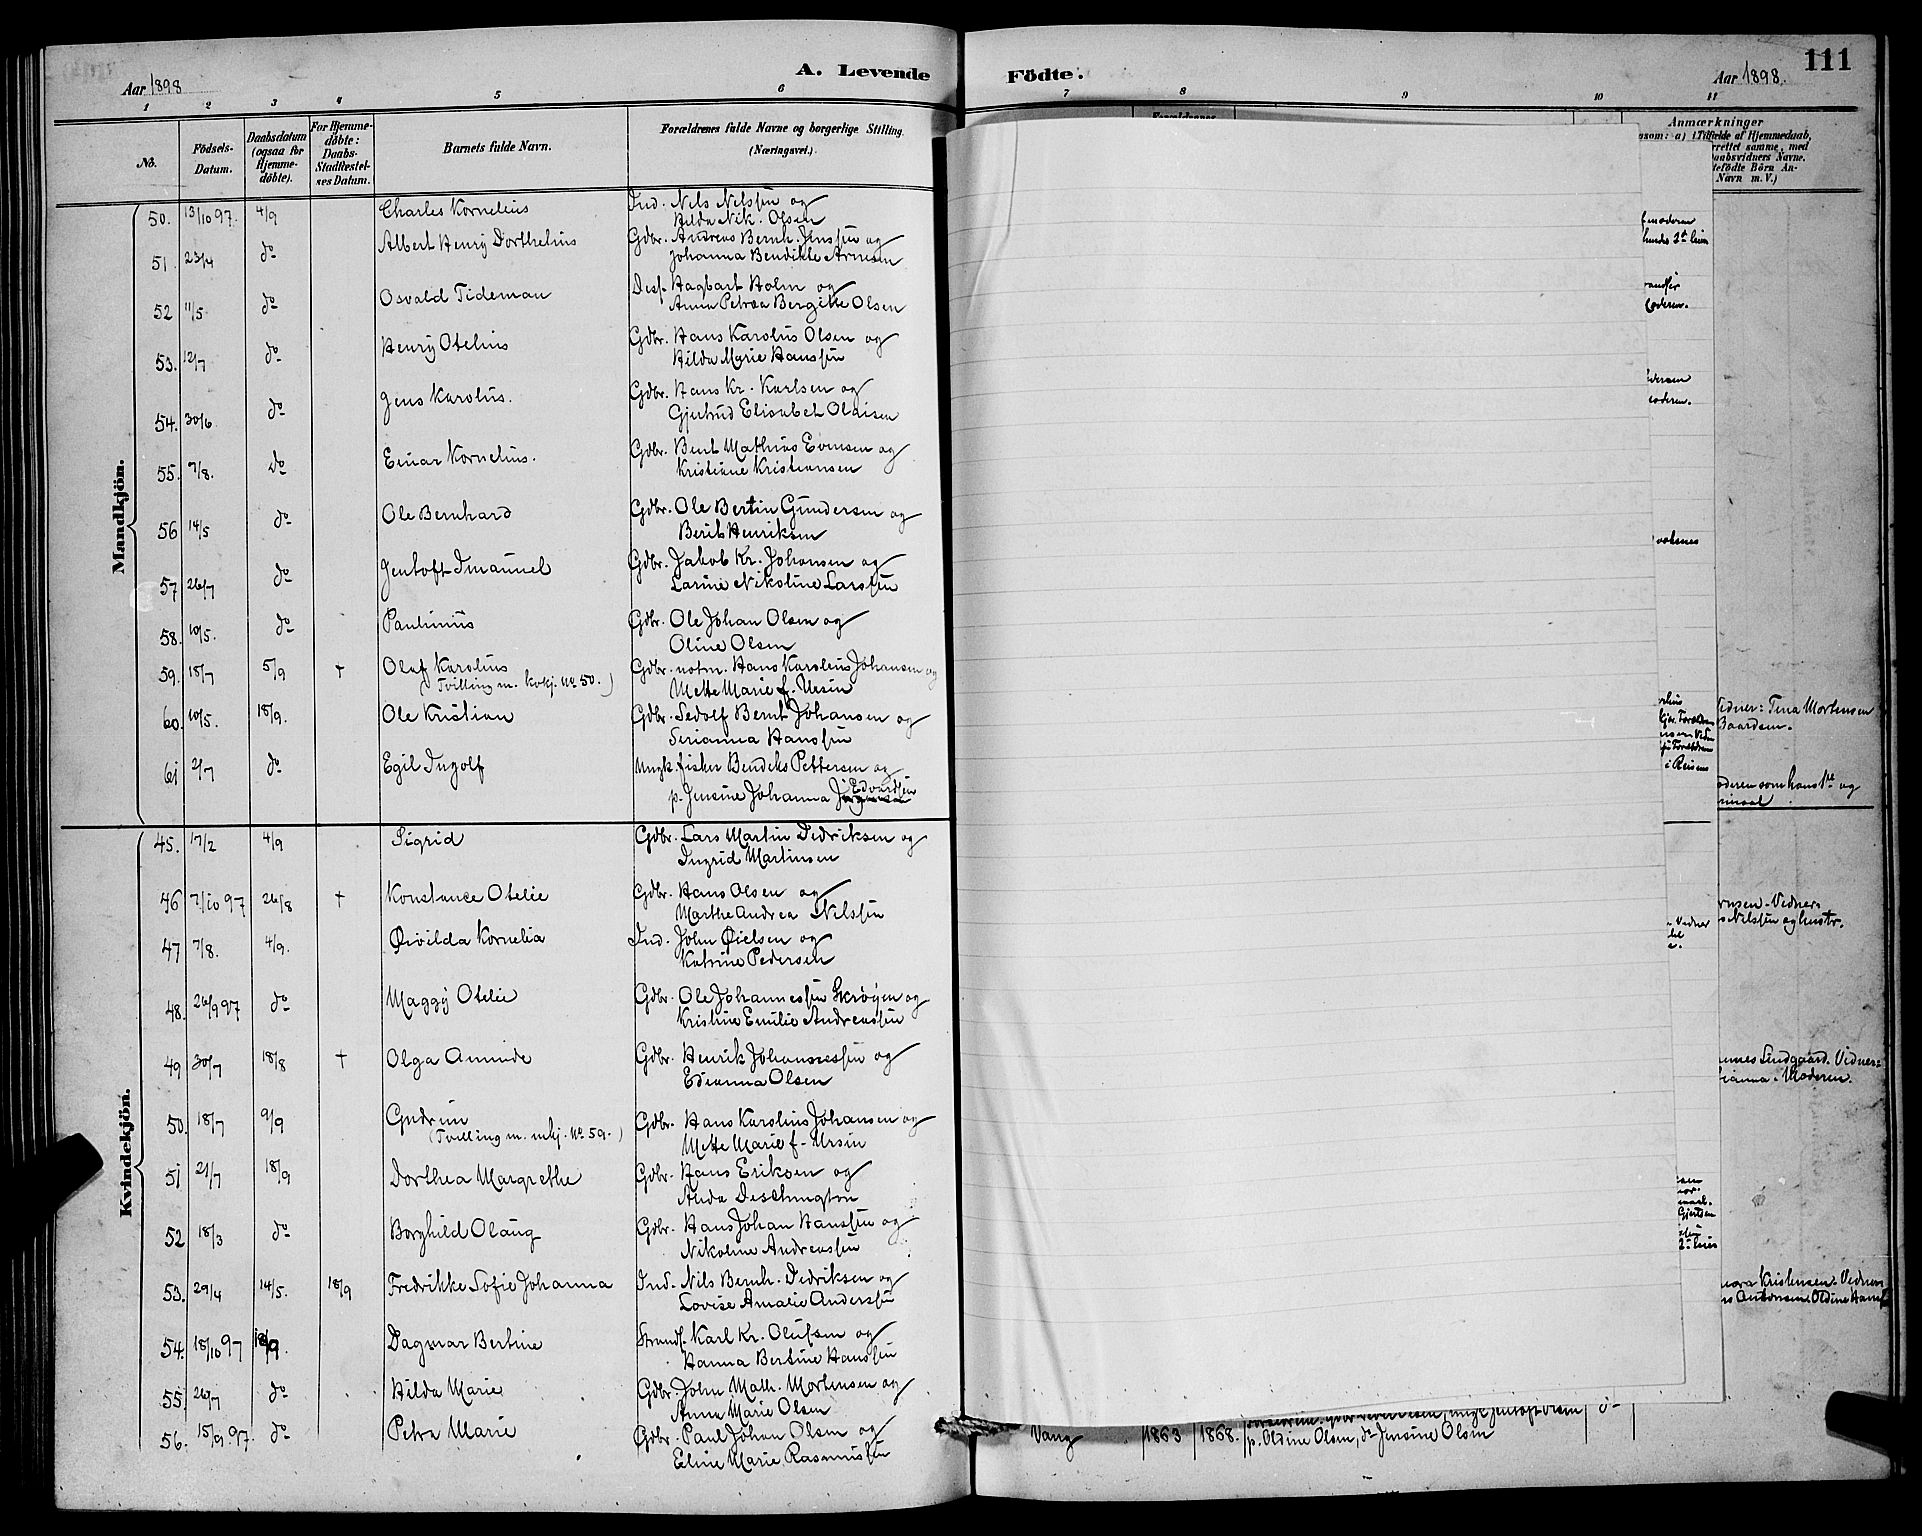 Aar 1898
A. Levende
Födte.
Aar 1898.
111
1 2 3 4 5 6 7 8 9 10 11
No.
Fødsels-
Datum.
Daabsdatum
(ogsaa for
Hjemme-
döbte).
For Hjemme-
döbte:
Daabs-
Stadfæstel-
ses Datum.
Barnets fulde Navn.
Forældrenes fulde Navne og borgerlige Stilling.
(Næringsvei.)
Anmærkninger
saasom: a) i Tilfælde af Hjemmedaab,
rrettet samme, med
aabsvidners Navne.
tefödte Börn An-
Navn m. V.)
Mandkjön.
50. 13/10 97. 4/9 Charles Kornelius Ind. Nils Nilssen og
Hilda Nik. Olsen
51. 23/4 do Albert Henry Dorthelius Gdbr. Andreas Bernh. Jenssen og
Johanna Bendikte Arnesen
52 11/5 do Osvald Tideman Desf. Hagbart Holm og
Anna Petrea Bergitte Olsen
53. 12/7 do Henry Otelius Gdbr. Hans Karolus Olsen og
Hilda Marie Hanssen
54. 30/6 do Jens Karolus. Gdbr. Hans Kr. Karlsen og
Gjertrud Elisabet Olaisen
55. 7/8. do Einar Kornelius. Gdbr. Bent Mathias Evensen og
Kristiane Kristiansen
56 14/5 do Ole Bernhard Gdbr. Ole Bertin Gundersen og
Berit Henriksen
57 26/7 do Jentoft Imanuel Gdbr. Jakob Kr. Johansen og
Larine Nikoline Larssen
58. 10/5. do Paulinius Gdbr. Ole Johan Olsen og
Oline Olsen
59. 18/7 5/9 + Olaf Karolius Gdbr. notm. Hans Karolius Johansen og
(Tvilling m. kvkj. No 50.) Mette Marie f. Ursin
60. 10/5. 18/9. Ole Kristian Gdbr. Sedolf Bernt Johansen og
Serianna Hanssen
61 2/7 do Egil Ingolf Ungk. fisker Bendeks Pettersen og
p. Jensine Johanna Edvardsen
Vidner: Tina Mortensen
Baardsen.
oderen som hans 1ste og
Kvindekjön.
45. 17/2 4/9 Sigrid Gdbr. Lars Martin Dedriksen og
Ingrid Martinsen
46 7/10 97 26/8 + Konstance Otelie Gdbr. Hans Olsen og
Marthe Andrea Nilssen
Vidner
Nilssen og hustr.
47 7/8. 4/9. Øivilda Kornelia Ind. John Øielsen og
Katrine Pedersen
48. 26/9 97 do Maggy Otelie Gdbr. Ole Johannessen Skrøyen og
Kristine Emilie Andreassen
49 30/7 18/8 + Olga Aminde Gdbr. Henrik Johannessen og
Edianna Olsen
Lindgaard. Vidner:
Moderen.
50. 18/7 9/9 Gudrun Gdbr. Hans Karolius Johansen og
(Tvilling m. mkj. No. 59.) Mette Marie f. Ursin
51 21/7 18/9 Dorthea Margrethe Gdbr. Hans Eriksen og
Anda Deschington
52 18/3 do Borghild Olaug Gdbr. Hans Johan Hanssen og
Nikoline Andreassen
53. 29/4 14/5. 18/9 Fredrikke Sofie Johanna Ind. Nils Bernh. Dedriksen og
Lovise Amalie Anderssen
Kristensen. Vidner
Antonsen. Oldine Hans
54. 18/10 97 18/9. Dagmar Bertine Strands. Karl Kr. Olufsen og
Hanna Bertine Hanssen
55. 26/7 do Hilda Marie Gdbr. John Math. Mortensen og
Anna Marie Olsen
56. 15/9. 97. do Petra Marie Gdbr. Paul Johan Olsen og
Eline Marie Rasmussen
Vang 1863 1868. p. Oldine Olsen, do Jensine Olsen